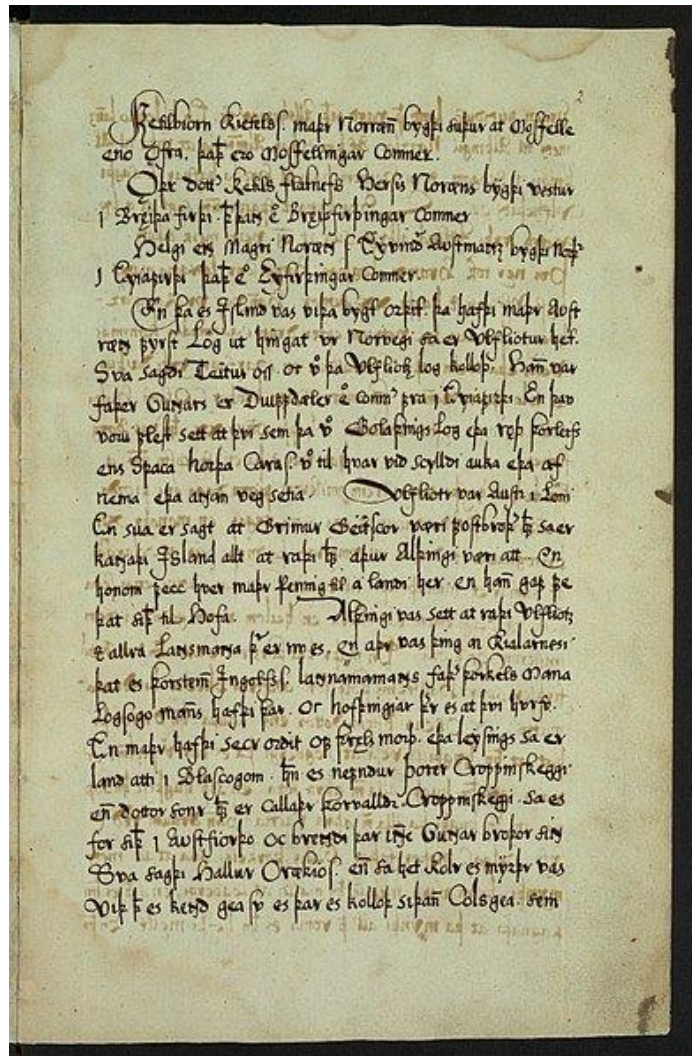 2
Ketilbiorn Ketilss. maþr Norrœn̄ bygþi suþur at Mosfelle
eno Øfra. þaþ̄ ero Mosfellingar Comner.
Oþr dott᷎ Ketils flatnefs Hersis Norœns bygþi vestur
i Breiþa firþi. þ̄þan e᷎ Breiþfirþingar Comner
Helgi en Magri Norœn s Eyvind᷎ Austmanz bygþi Norþ᷎
i Eyiafirþi þaþ̄ e᷎ Eyfirþingar Comner.
En þa es Island vas viþa bygt orþit. þa hafþi maþr Aust
rœn fyrst Løg ut hingat vr Norvegi sa er Vlfliotur het.
Sva sagdi Teitur oss. oc v᷎ þa Vlfliotz log kolloþ. Han̄ var
faþer Gunnars er Diupdœler e᷎ Comn᷎ fra i Eyiafirþi. En þav
voru flest sett at þvi sem þa v᷎ Golaþings Log eþa røþ þorleifs
ens Spaca Horþa Caras. v᷎ til hvar vid scylldi auka eþa af
nema eþa annan veg setia. Vlfliotr var Austr i Loni
En sua er sagt at Grimur Geitscor væri fostbroþ᷎ h̄s sa er
kannaþi Island allt at raþi h̄s aþur Alþingi væri att. En
honom fecc hver maþr Penning til a landi her. en han̄ gaf fe
þat siþ̄ til Hofa. Alþingi vas sett at raþi Vlfliotz
& allra Lanzmanna þ᷎ er nv es. En aþr vas þing a Kialarnesi
þat es þorstein̄ Ingolfss. landnamamans faþ᷎ þorkels Mana
Løgsogo man̄s hafþi þar. Oc hofþingiar þ᷎r es at þvi hvrfv.
En maþr hafþi secr ordit of þræls morþ. eþa leysings sa er
land atti i Blascogom. h̄n es nefndur þorer Croppinskeggi
en̄ dottor sonr h̄s er callaþr þorvalldr Croppinskeggi. sa es
for siþ̄ i Austfiorþo oc brenndi þar in̄e Gunnar broþor sin
Sva sagþi Hallur Orœkios. en̄ sa het Kolr es myrþr vas
Viþ þ̄ es kennd gea sv es þar es kolloþ siþan̄ Colsgea. sem